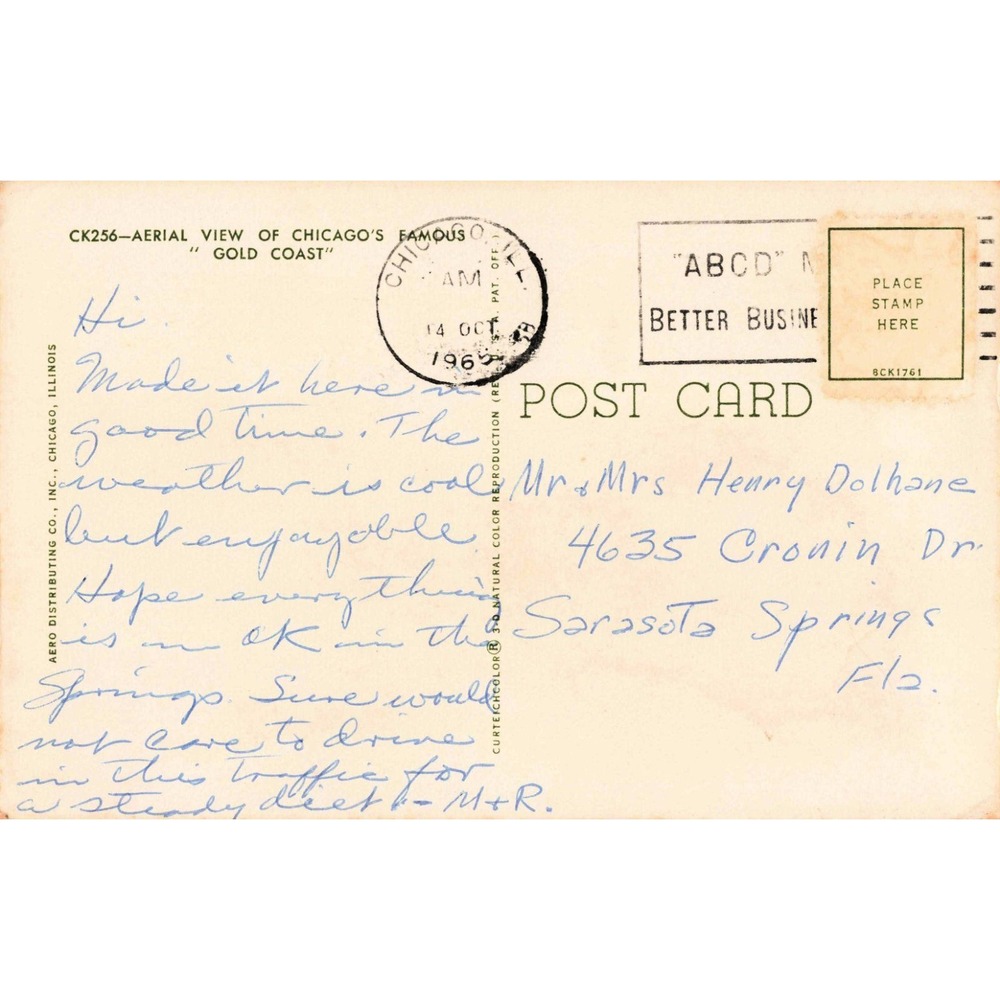 CK256—AERIAL VIEW OF CHICAGO'S FAMOUS
" GOLD COAST"
Hi.
Made it here in
good time. The
weather is cool
but enjoyable.
Hope everything
is OK in the
Springs. Sure would
not care to drive
in this traffic for
a steady diet - M+R.
AERO DISTRIBUTING CO., INC., CHICAGO, ILLINOIS
CURTEICHCOLOR® 3-D NATURAL COLOR REPRODUCTION (REG. U.S.A. PAT. OFF.)
CHICAGO, ILL.
AM
14 OCT
1965
"ABCD"
BETTER BUSINE
PLACE
STAMP
HERE
8CK1761
POST CARD
Mr + Mrs Henry Dolhane
4635 Cronin Dr.
Sarasota Springs
Fla.